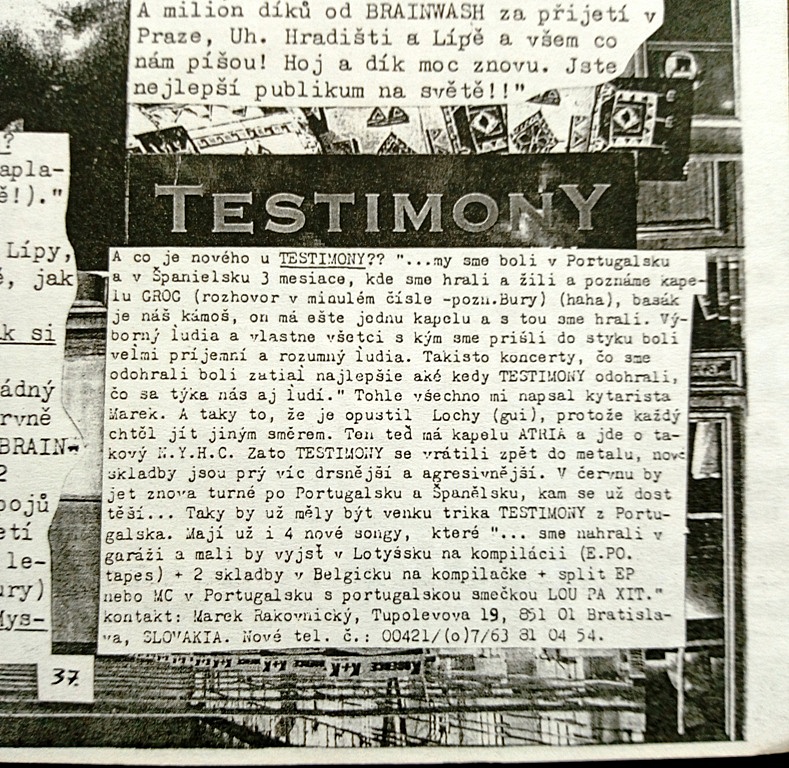 A milion díků od BRAINWASH za přijetí v
Praze, Uh. Hradišti a Lípě a všem co
nám píšou! Hoj a dík moc znovu. Jste
nejlepší publikum na světě!!"
?
apla-
ě!)."
Lípy,
é, jak
ak si
ádný
rvně
BRAIN-
2
pojů
etí
le-
ury)
Mys-
TESTIMONY
A co je nového u TESTIMONY?? "...my sme boli v Portugalsku
a v Španielsku 3 mesiace, kde sme hrali a žili a poznáme kape-
lu GROG (rozhovor v minulém čísle -pozn.Bury) (haha), basák
je náš kámoš, on má ešte jednu kapelu a s tou sme hrali. Vý-
borný ludia a vlastne všetci s kým sme prišli do styku boli
velmi príjemní a rozumný ludia. Takisto koncerty, čo sme
odohrali boli zatial najlepšie aké kedy TESTIMONY odohrali,
čo sa týka nás aj ludí." Tohle všechno mi napsal kytarista
Marek. A taky to, že je opustil Lochy (gui), protože každý
chtěl jít jiným směrem. Ten teď má kapelu ATRIA a jde o ta-
kový N.Y.H.C. Zato TESTIMONY se vrátili zpět do metalu, nové
skladby jsou prý víc drsnější a agresivnější. V červnu by
jet znova turné po Portugalsku a Španělsku, kam se už dost
těší... Taky by už měly být venku trika TESTIMONY z Portu-
galska. Mají už i 4 nové songy, které "... sme nahrali v
garáži a mali by vyjsť v Lotyšsku na kompilácii (E.PO.
tapes) + 2 skladby v Belgicku na kompilačke + split EP
nebo MC v Portugalsku s portugalskou smečkou LOU PA XIT."
kontakt: Marek Rakovnický, Tupolevova 19, 851 01 Bratisla-
va, SLOVAKIA. Nové tel. č.: 00421/(o)7/63 81 04 54.
37